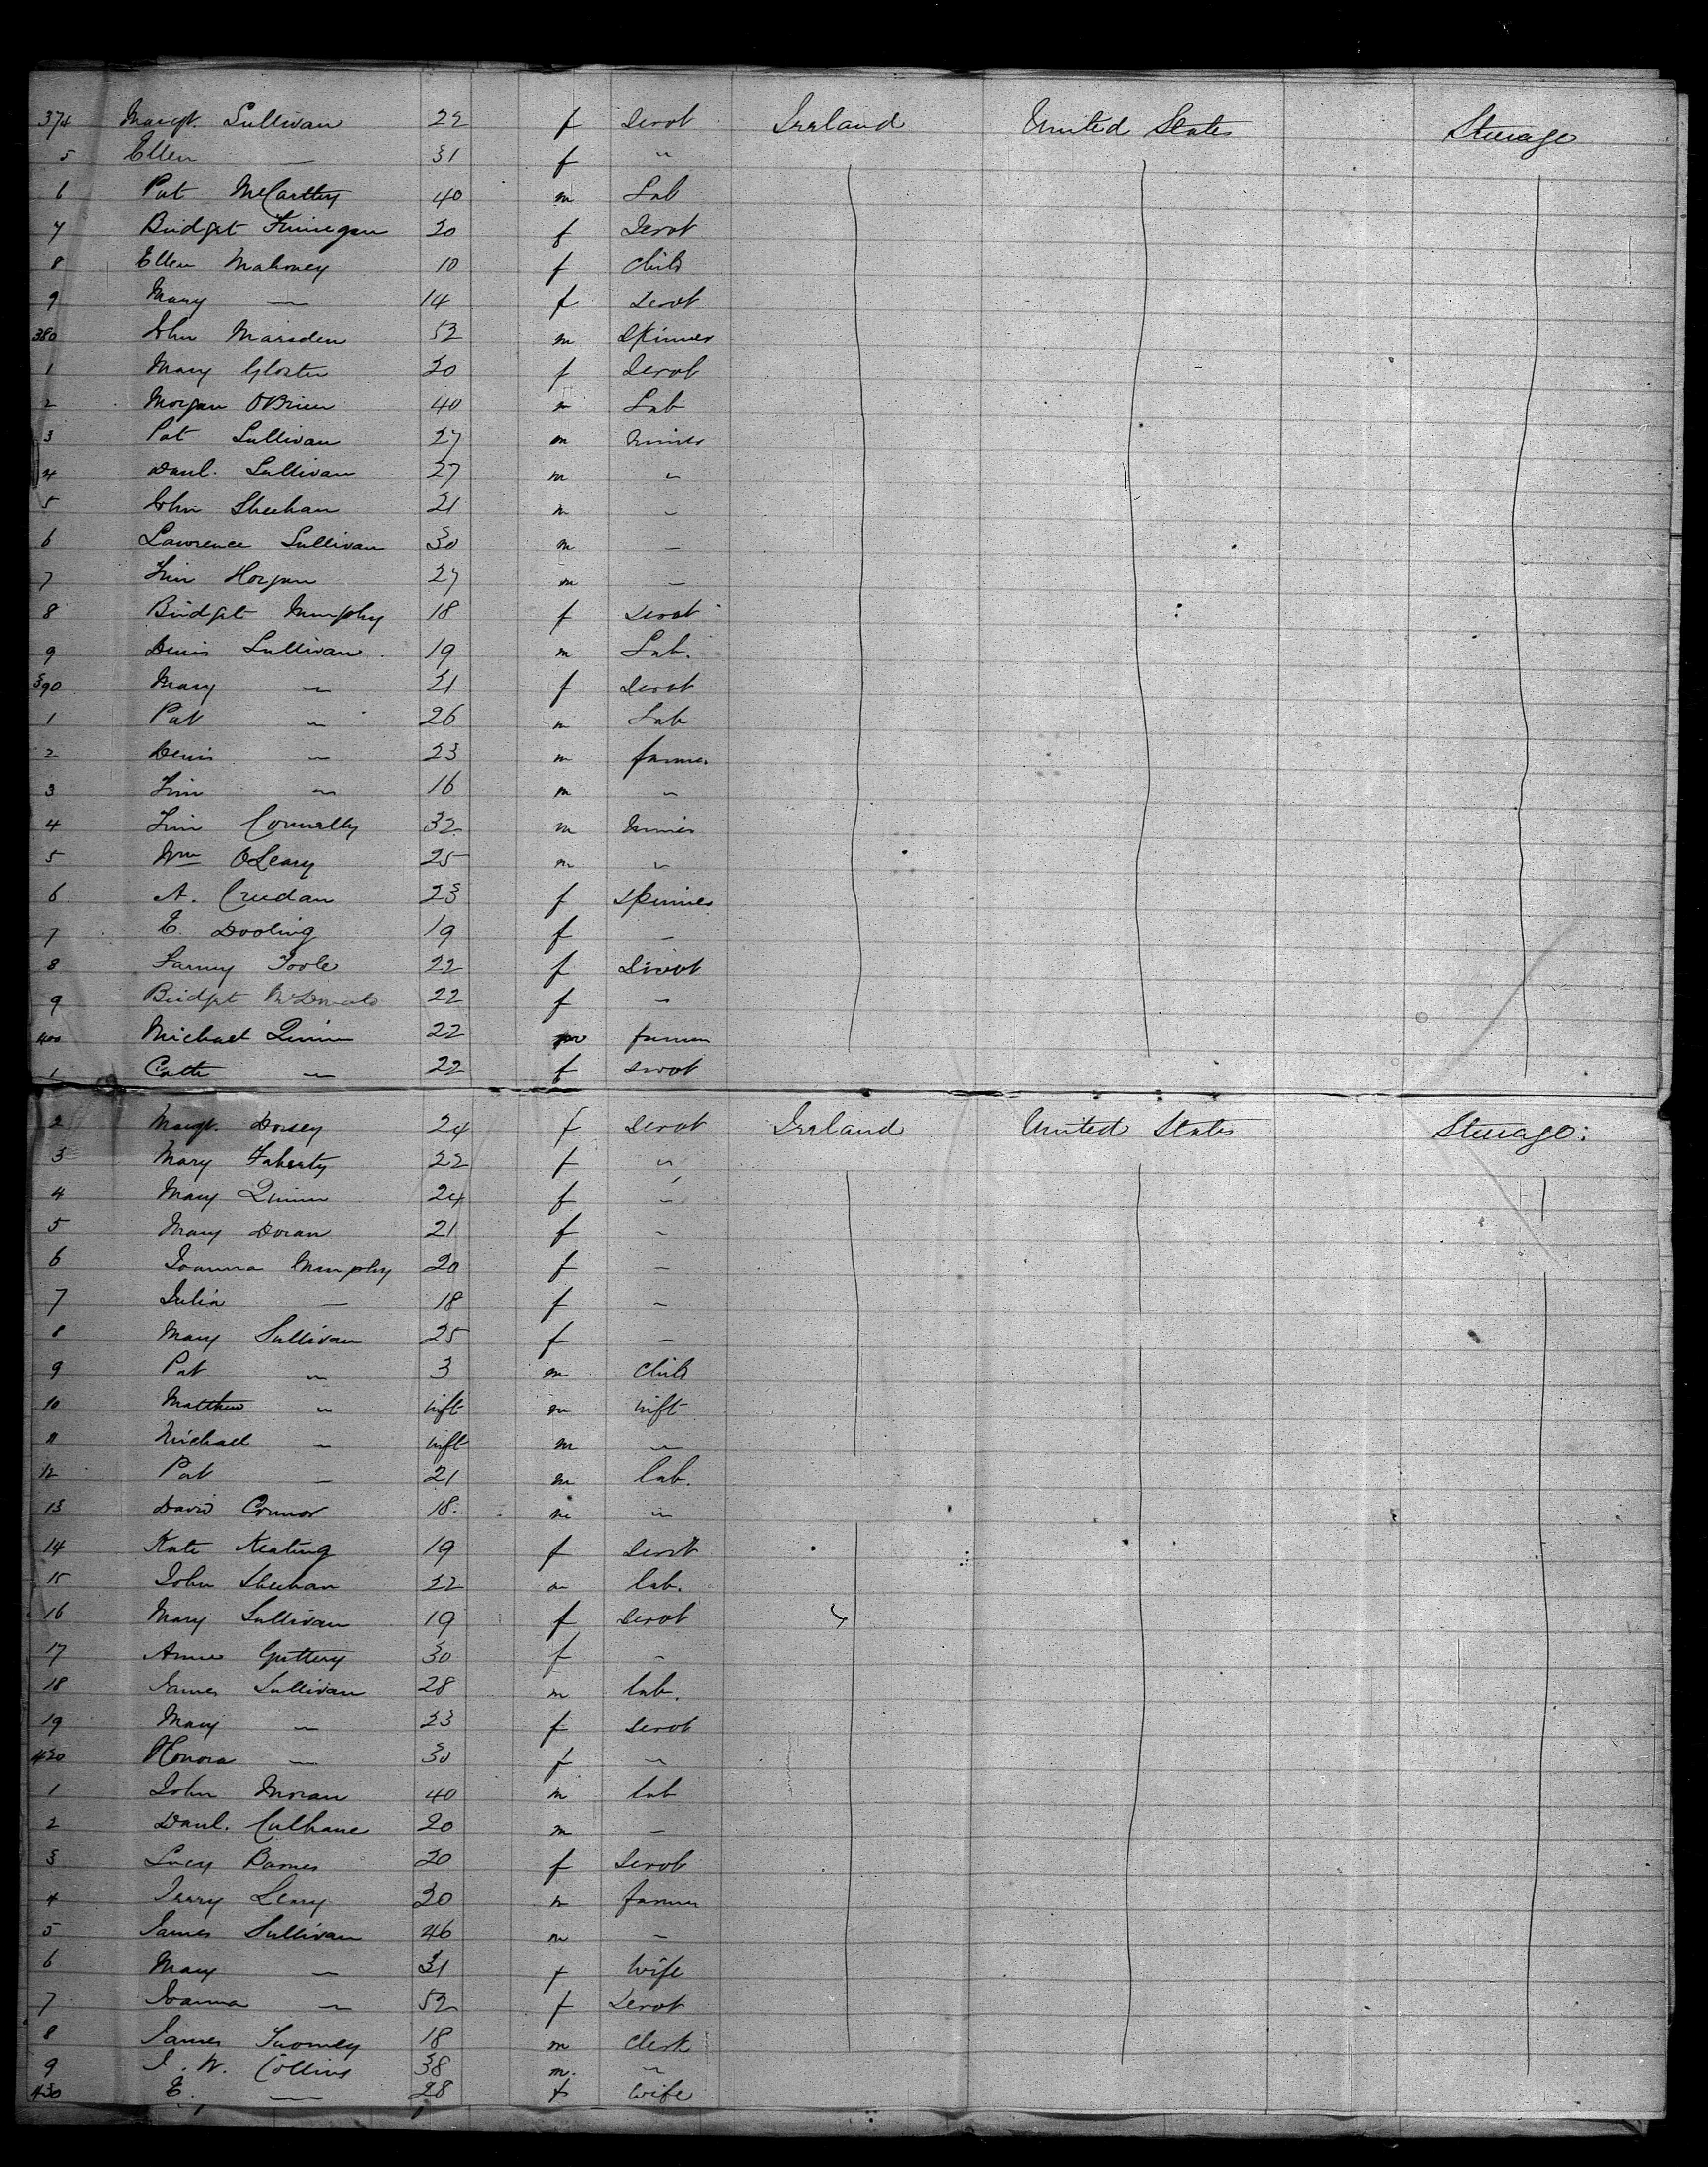 374 Margt. Sullivan 22 f Servt Ireland United States Steerage
5 Ellen — 31 f "
6 Pat McCarthy 40 m Lab
7 Bridget Finnegan 20 f Servt
8 Ellen Mahoney 10 f Child
9 Mary — 14 f Servt
380 John Marsden 52 m Spinner
1 Mary Gloster 20 f Servt
2 Morgan OBrien 40 m Lab
3 Pat Sullivan 27 m Miner
4 Danl. Sullivan 27 m "
5 John Sheehan 21 m "
6 Lawrence Sullivan 30 m —
7 Tim Horgan 27 m —
8 Bridget Murphy 18 f Servt
9 Denis Sullivan 19 m Lab.
390 Mary " 21 f Servt
1 Pat " 26 m Lab
2 Denis " 23 m farmer
3 Tim " 16 m "
4 Tim Connelly 32 m Miner
5 Wm OLeary 25 m "
6 A. Creedan 23 f Spinner
7 E. Dooling 19 f —
8 Fanny Toole 22 f Servt
9 Bridget McDonald 22 f "
400 Michael Quinn 22 m farmer
1 Cath " 22 f Servt
2 Margt. Dorsey 24 f Servt Ireland United States Steerage
3 Mary Faherty 22 f "
4 Mary Quinn 24 f "
5 Mary Doran 21 f "
6 Joanna Murphy 20 f —
7 Julia — 18 f "
8 Mary Sullivan 25 f —
9 Pat " 3 m Child
10 Matthew " inft m inft
11 Michael " inft m "
12 Pat — 21 m lab.
13 David Connor 18 m "
14 Kate Keating 19 f Servt
15 John Sheehan 22 m lab.
16 Mary Sullivan 19 f Servt
17 Annie 30 f "
18 James Sullivan 28 m lab.
19 Mary " 23 f Servt
420 Honora — 30 f "
1 John Moran 40 m lab
2 Danl. Culhane 20 m —
3 Lucy Barnes 20 f Servt
4 Jerry Leary 30 m farmer
5 James Sullivan 46 m —
6 Mary — 31 f Wife
7 Joanna " 52 f Servt
8 James Twomey 18 m Clerk
9 J. W. Collins 38 m. "
430 E. — 28 f Wife